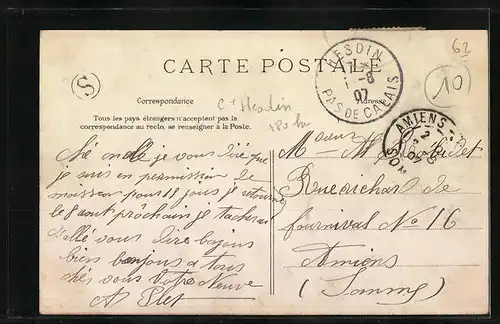 CARTE POSTALE
Correspondance
Adresse
Tous les pays étrangers n'acceptent pas la
correspondance au recto, se renseigner à la Poste.
HESDIN
1 -8
07
PAS DE CALAIS
AMIENS
S
62
10
Cn Hesdin
je vous dire que
je suis en permission de
moisson pour 18 jours je retourne
le 8 aout prochain je tacherai
d'allé vous dire bojous
bien bonjous a tous
chés vous Votre neveu
A
Rue richard de
fournival No 16
Amiens
(Somme)